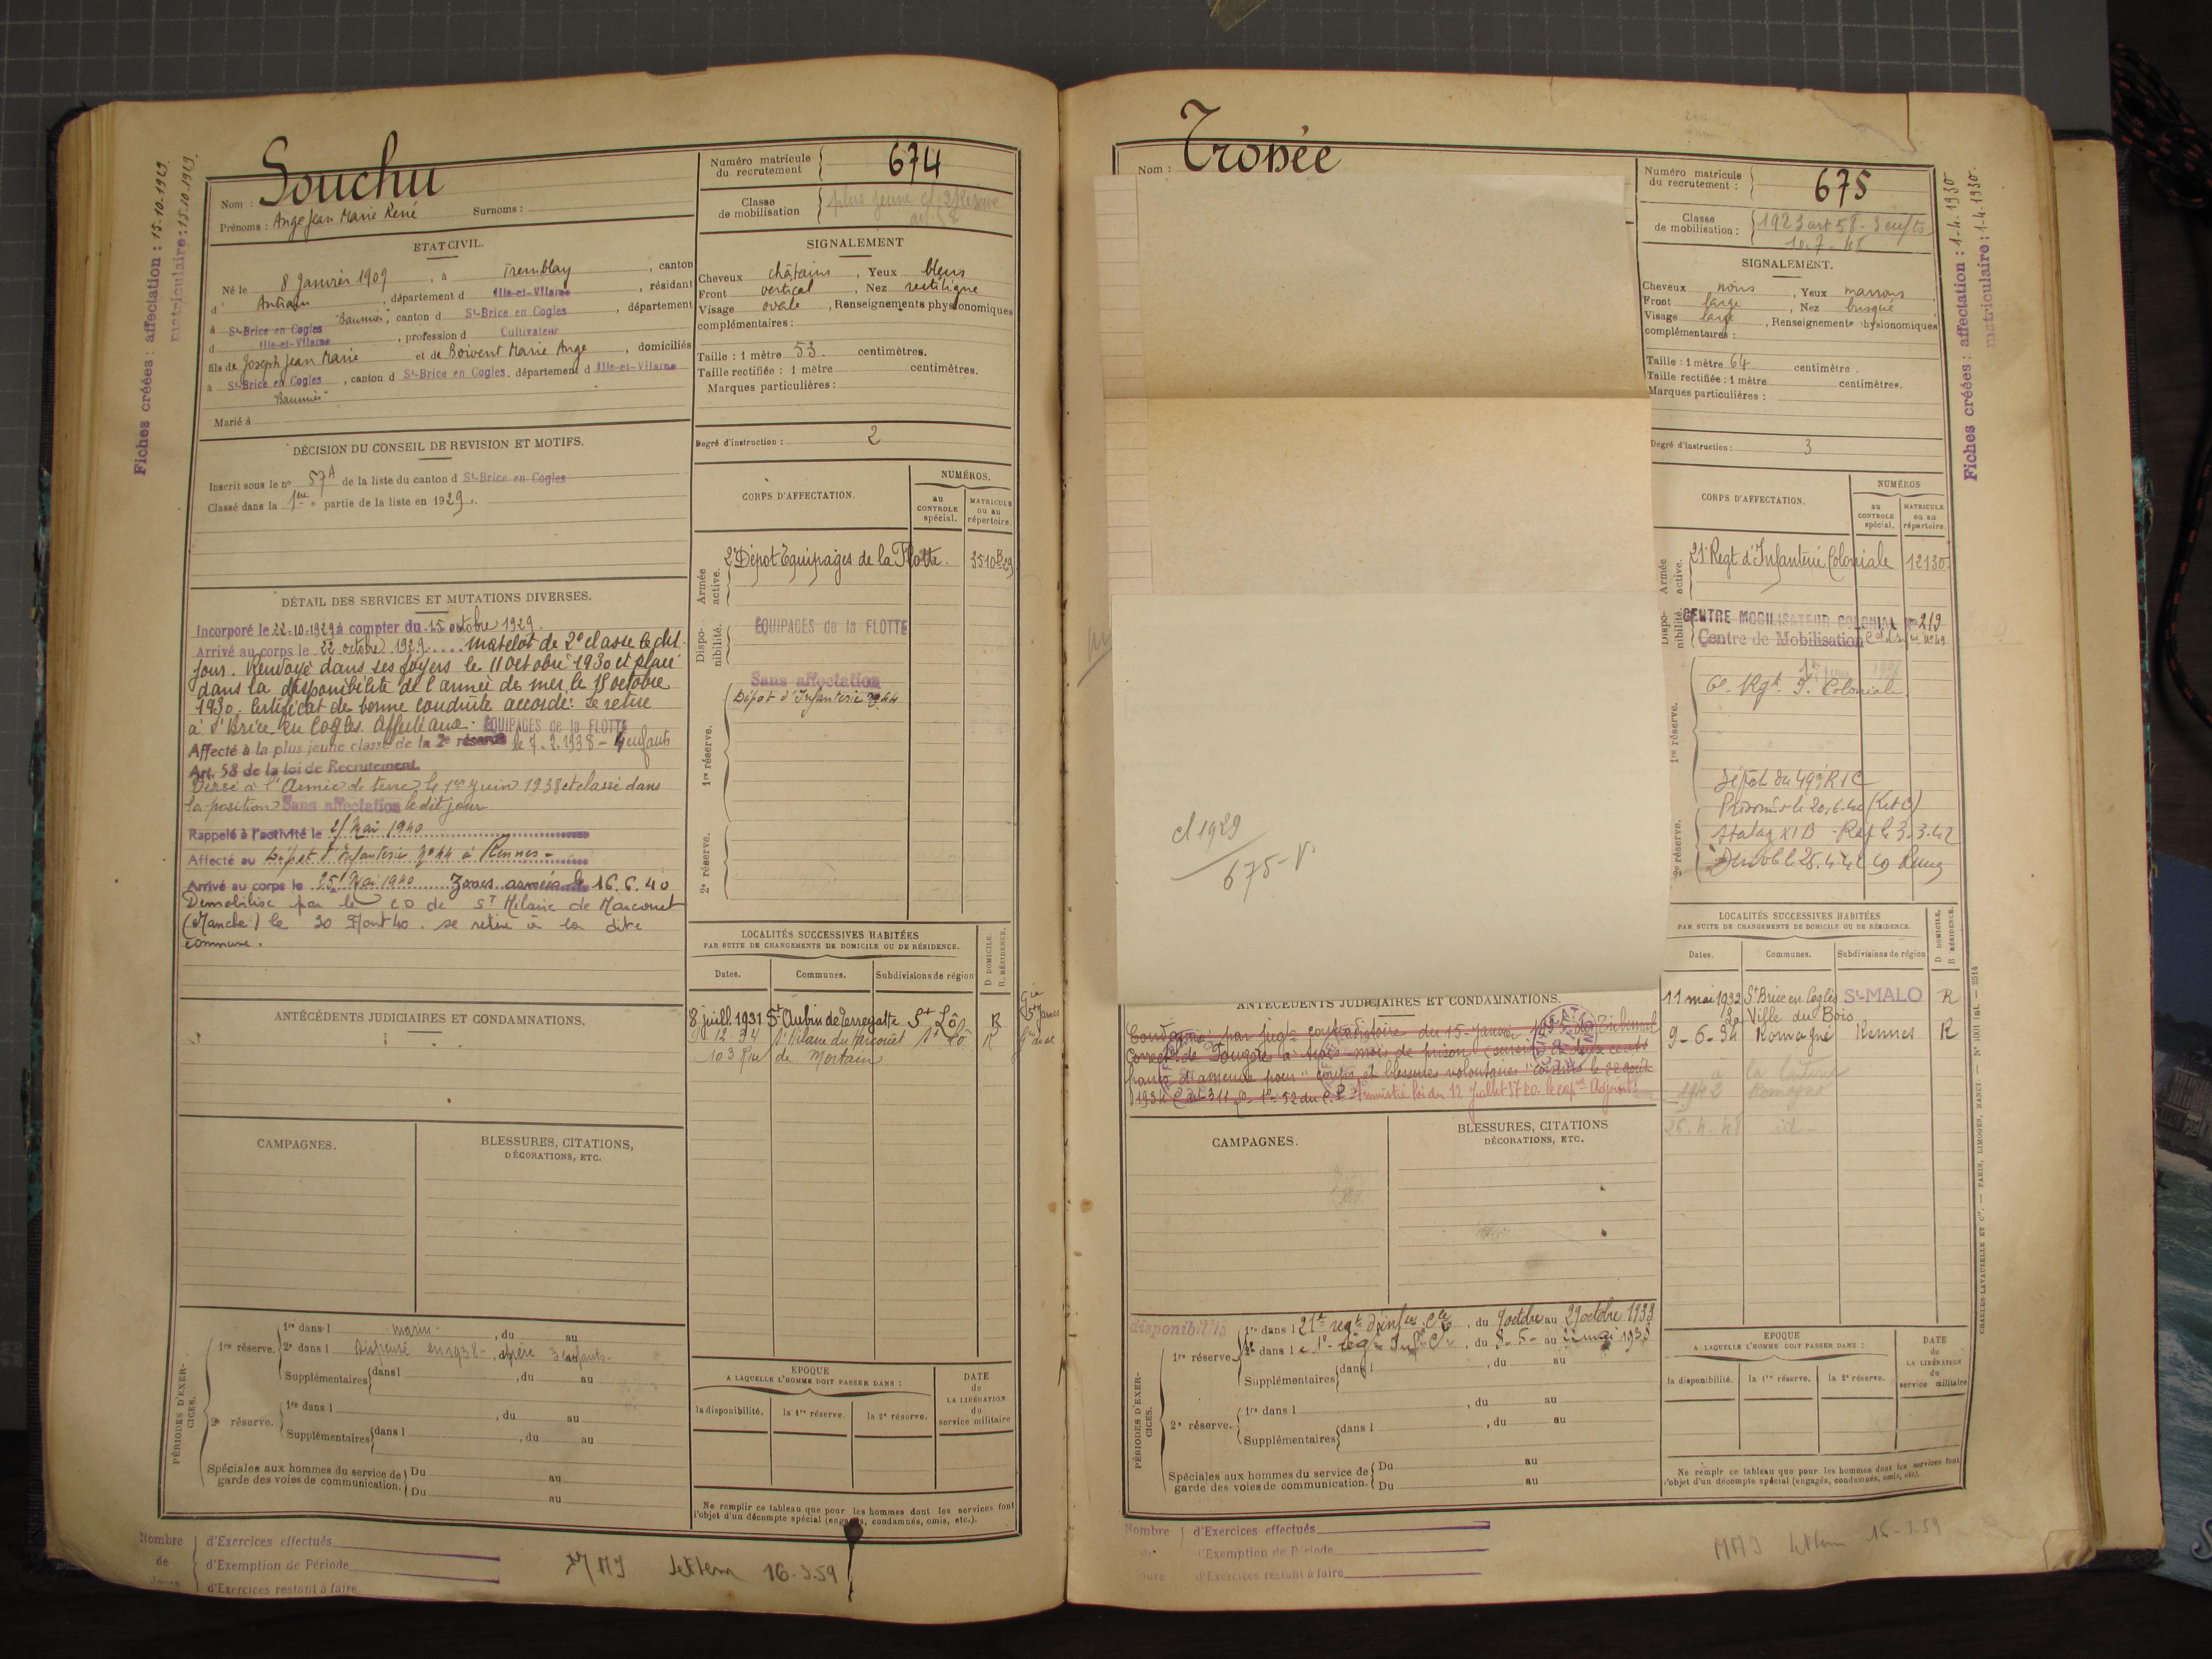 Fiches créées : affectation : 15.10.1929
matriculaire : 15.10.1929
Nom : Souchu
Prénoms : Ange Jean Marie René Surnoms :
Numéro matricule du recrutement 674
Classe de mobilisation plus jeune cl. 2e Réserve
ETAT CIVIL.
Né le 8 Janvier 1909, à Tremblay, canton
d' Antrain, département d Ille-et-Vilaine, résidant
à St-Brice en Cogles "Baumier", canton d St-Brice en Cogles, département
d Ille-et-Vilaine, profession d Cultivateur
fils de Joseph Jean Marie et de Boivent Marie Ange, domiciliés
à St-Brice en Cogles, canton d St-Brice en Cogles, département d Ille-et-Vilaine
"Baumier"
Marié à
SIGNALEMENT
Cheveux châtains, Yeux bleus
Front vertical, Nez rectiligne
Visage ovale, Renseignements physionomiques
complémentaires :
Taille : 1 mètre 53 centimètres.
Taille rectifiée : 1 mètre centimètres.
Marques particulières :
Degré d'instruction : 2
DÉCISION DU CONSEIL DE REVISION ET MOTIFS.
Inscrit sous le no 57A de la liste du canton d St-Brice en Cogles
Classé dans la 1ere partie de la liste en 1929.
DÉTAIL DES SERVICES ET MUTATIONS DIVERSES.
Incorporé le 22-10-1929 à compter du 15 octobre 1929.
Arrivé au corps le 22 octobre 1929. matelot de 2e classe le dit
jour. Renvoyé dans ses foyers le 11 Octobre 1930 et placé
dans la disponibilité de l'armée de mer le 15 octobre
1930. Certificat de bonne conduite accordé. Se retire
à St Brice en Cogles. Affecté aux ÉQUIPAGES de la FLOTTE
Affecté à la plus jeune classe de la 2e réserve le 7.2.1938 - 4 enfants
Art. 58 de la loi de Recrutement
Versé à l'Armée de terre le 1er Juin 1938 et classé dans
la position Sans affectation le dit jour
Rappelé à l'activité le Mai 1940
Affecté au Dépôt d'Infanterie no 44 à Rennes
Arrivé au corps le 25 Mai 1940 Zones armées le 16.6.40
Démobilisé par le CD de St Hilaire de Harcouet
(Manche) le 20 Août 40. se retire à la dite
commune.
CORPS D'AFFECTATION.
NUMÉROS.
au CONTROLE spécial.
MATRICULE ou au répertoire.
Armée active.
2e Dépôt Equipages de la Flotte. 3510B29
Disponibilité.
ÉQUIPAGES de la FLOTTE
1re réserve.
Sans affectation
Dépôt d'Infanterie no 44
2e réserve.
LOCALITÉS SUCCESSIVES HABITÉES
PAR SUITE DE CHANGEMENTS DE DOMICILE OU DE RÉSIDENCE.
D. DOMICILE. R. RÉSIDENCE.
Dates. Communes. Subdivisions de région
8 juill. 1931 St Aubin de Terregatte St Lô R
9-12-34 St Hilaire du Harcouët St Lô R
103 Rue de Mortain
ANTÉCÉDENTS JUDICIAIRES ET CONDAMNATIONS.
CAMPAGNES.
BLESSURES, CITATIONS,
DÉCORATIONS, ETC.
PÉRIODES D'EXERCICES.
1re réserve. 1re dans l marin, du au
2e dans l Dispensé en 1938 -, père 3 enfants
Supplémentaires dans l, du au
, du au
2e réserve. 1re dans l, du au
Supplémentaires dans l, du au
Spéciales aux hommes du service de garde des voies de communication. Du au
Du au
EPOQUE
A LAQUELLE L'HOMME DOIT PASSER DANS :
la disponibilité. la 1re réserve. la 2e réserve.
DATE de LA LIBÉRATION du service militaire
Ne remplir ce tableau que pour les hommes dont les services font
l'objet d'un décompte spécial (engagés, condamnés, omis, etc.).
Nombre de Jours
d'Exercices effectués
d'Exemption de Période
d'Exercices restant à faire
16.3.59
Nom : Tronée
Numéro matricule du recrutement : 675
Classe de mobilisation : 1923 art 58 - 3 enfts
10.7-
Fiches créées : affectation : 1-4-1930
matriculaire : 1-4-1930
SIGNALEMENT.
Cheveux noirs, Yeux marrons
Front large, Nez busqué
Visage large, Renseignements physionomiques
complémentaires :
Taille : 1 mètre 64 centimètre.
Taille rectifiée : 1 mètre centimètres.
Marques particulières :
Degré d'instruction : 3
CORPS D'AFFECTATION.
NUMÉROS
au CONTROLE spécial.
MATRICULE ou au répertoire.
Armée active.
21e Regt d'Infanterie Coloniale 12130
Disponibilité.
CENTRE MOBILISATEUR COLONIAL No 219
Centre de Mobilisation
1re réserve.
Rgt I. Coloniale
Dépôt du RIC
2e réserve.
Prisonnier le 20.6.40
Stalag XI B - Rap le 3.3.42
cl 1929
675-V
LOCALITÉS SUCCESSIVES HABITÉES
PAR SUITE DE CHANGEMENTS DE DOMICILE OU DE RÉSIDENCE.
D DOMICILE. R RÉSIDENCE.
Dates. Communes. Subdivisions de région
11 mai 1932 St Brice en Cogles St-MALO R
La Ville du Bois
9-6-34 Romagné Rennes R
1942 Romagné
ANTÉCÉDENTS JUDICIAIRES ET CONDAMNATIONS.
Condamné par jugt contradictoire du 15 Janvier Tribunal
Correct. de Fougères à trois mois de prison (sursis) et deux cents
francs d'amende pour "coups et blessures volontaires" commis le août
1934 Art 311 du C.P. Amnistié loi du 12 Juillet 37
CAMPAGNES.
BLESSURES, CITATIONS
DÉCORATIONS, ETC.
PÉRIODES D'EXERCICES.
disponibilité
1re dans l 21e regt d'infrie Cle, du 9 octbre au 29 octobre 1933
1re réserve. 2e dans l, du 8-5- au 22 mai 1938
Supplémentaires dans l, du au
, du au
2e réserve. 1re dans l, du au
Supplémentaires dans l, du au
Spéciales aux hommes du service de garde des voies de communication. Du au
Du au
EPOQUE
A LAQUELLE L'HOMME DOIT PASSER DANS :
la disponibilité. la 1re réserve. la 2e réserve.
DATE du LA LIBÉRATION du service militaire
Ne remplir ce tableau que pour les hommes dont les services font
l'objet d'un décompte spécial (engagés, condamnés, omis, etc.).
Nombre de Jours
d'Exercices effectués
d'Exemption de Période
d'Exercices restant à faire
16-3.59
CHARLES-LAVAUZELLE ET Cie. — PARIS, LIMOGES, NANCY.